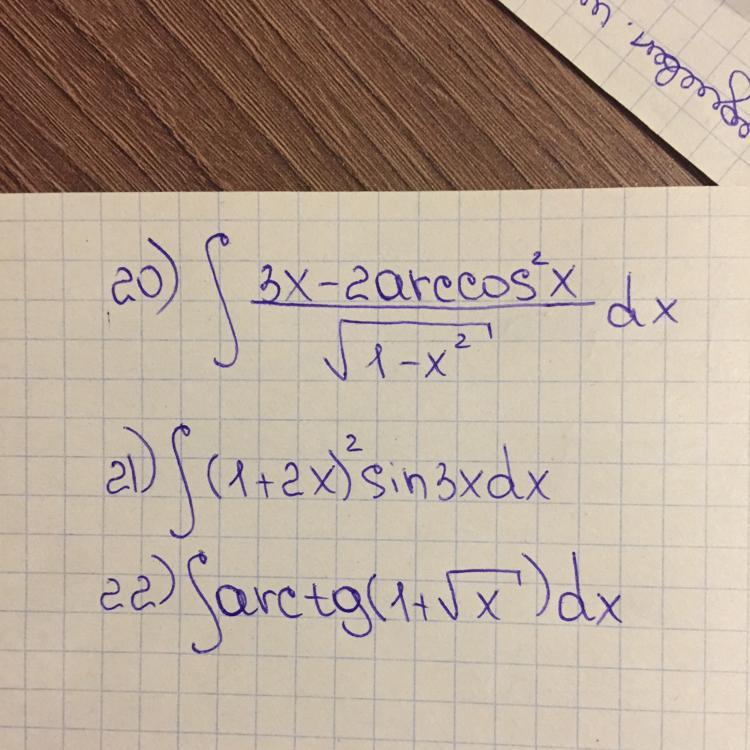 20) ∫ (3x - 2arccos²x)/√(1-x²) dx
21) ∫(1+2x)² sin3xdx
22) ∫arctg(1+√x)dx